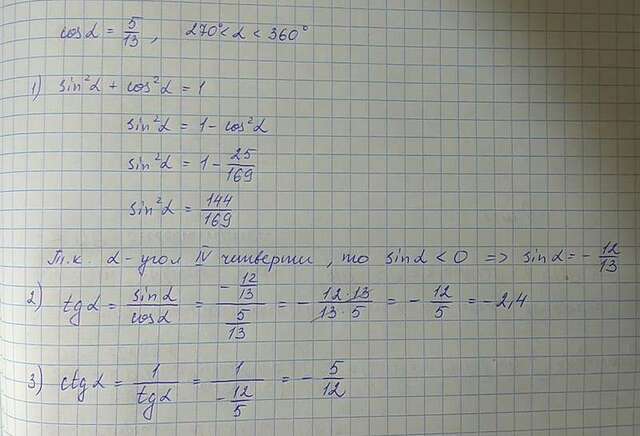 cosα = 5/13, 270° < α < 360°
1) sin²α + cos²α = 1
sin²α = 1 - cos²α
sin²α = 1 - 25/169
sin²α = 144/169
Т.к. α - угол IV четверти, то sinα < 0 => sinα = - 12/13
2) tgα = sinα/cosα = (- 12/13)/(5/13) = - (12·13)/(13·5) = - 12/5 = -2,4
3) ctgα = 1/tgα = 1/(- 12/5) = - 5/12